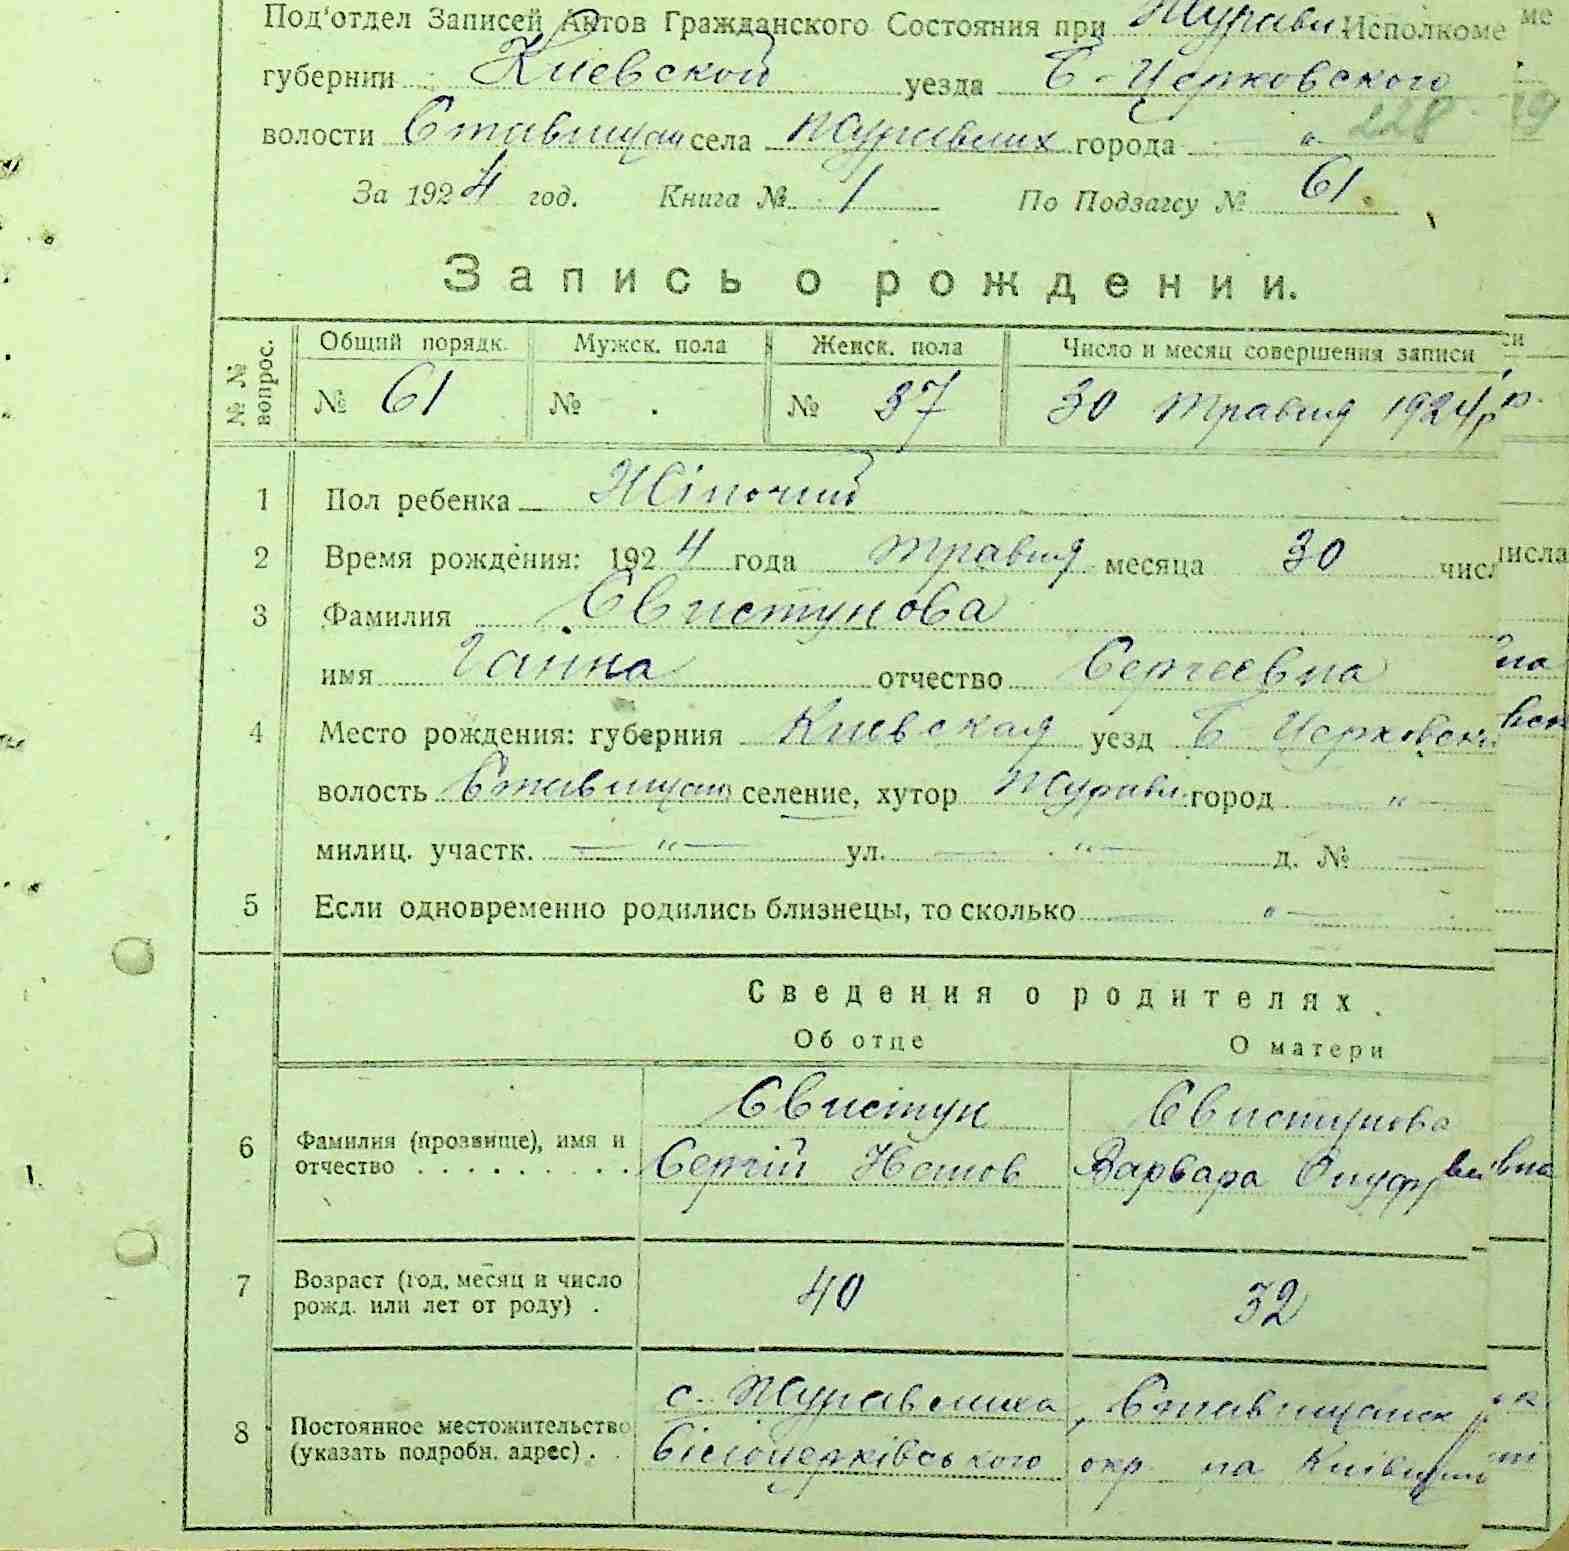 Под'отдел Записей Актов Гражданского Состояния при Журавл. Исполкоме
губернии Киевской уезда Б-Церковского
волости Ставищан села Журавлих города " 228
За 1924 год. Книга № 1 По Подзагсу № 61.
Запись о рождении.
№ № вопрос. Общий порядк. Мужск. пола Женск. пола Число и месяц совершения записи
№ 61 № . № 37 30 травня 1924 р.
1 Пол ребенка Жіночий
2 Время рождения: 1924 года травня месяца 30 числ
3 Фамилия Свистунова
имя Ганна отчество Сергеевна
4 Место рождения: губерния Киевская уезд Б Церковск
волость Ставищан селение, хутор Журавл. город — " —
милиц. участк. — " — ул. — " — д. № —
5 Если одновременно родились близнецы, то сколько — " —
Сведения о родителях.
Об отце О матери
Свистун Свистунова
6 Фамилия (прозвище), имя и
отчество . . . . . . . . . . Сергій Варвара
7 Возраст (год, месяц и число
рожд. или лет от роду) . 40 32
с. Журавлиха, Ставищанск
8 Постоянное местожительство
(указать подробн. адрес) . . Білоцерківського окр. на Київщині